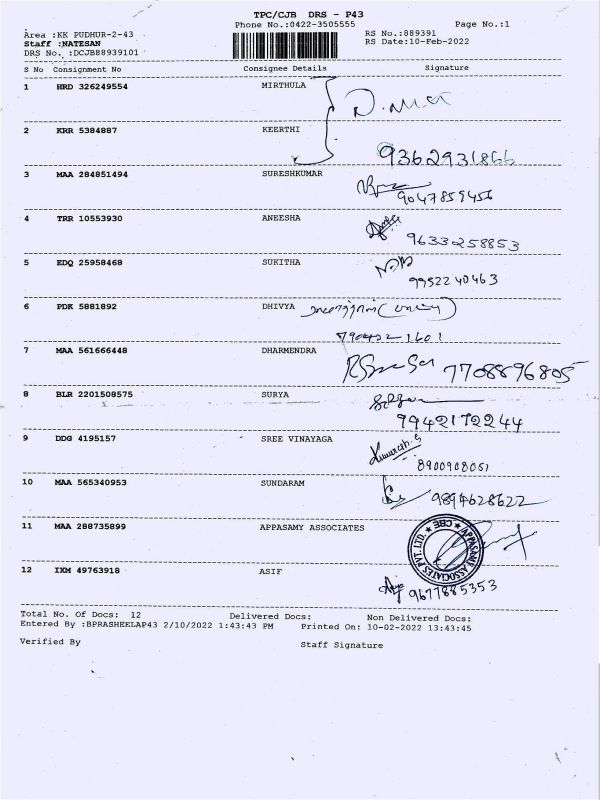 TPC/CJB DRS - P43
Phone No.:0422-3505555 Page No.:1
Area :KK PUDHUR-2-43 RS No.:889391
Staff :NATESAN RS Date:10-Feb-2022
DRS No. :DCJB88939101
S No Consignment No Consignee Details Signature
1 HRD 326249554 MIRTHULA
2 KRR 5384887 KEERTHI
9362931866
3 MAA 284851494 SURESHKUMAR
9047859456
4 TRR 10553930 ANEESHA
9633258853
5 EDQ 25958468 SUKITHA
9952240463
6 PDK 5881892 DHIVYA
790432 1601
7 MAA 561666448 DHARMENDRA
7708896805
8 BLR 2201508575 SURYA
9942172244
9 DDG 4195157 SREE VINAYAGA
8900908061
10 MAA 565340953 SUNDARAM
9894628622
11 MAA 288735899 APPASAMY ASSOCIATES
APPASAMY ASSOCIATES PVT. LTD. CBE
12 IXM 49763918 ASIF
9677885353
Total No. Of Docs: 12 Delivered Docs: Non Delivered Docs:
Entered By :BPRASHEELAP43 2/10/2022 1:43:43 PM Printed On: 10-02-2022 13:43:45
Verified By Staff Signature